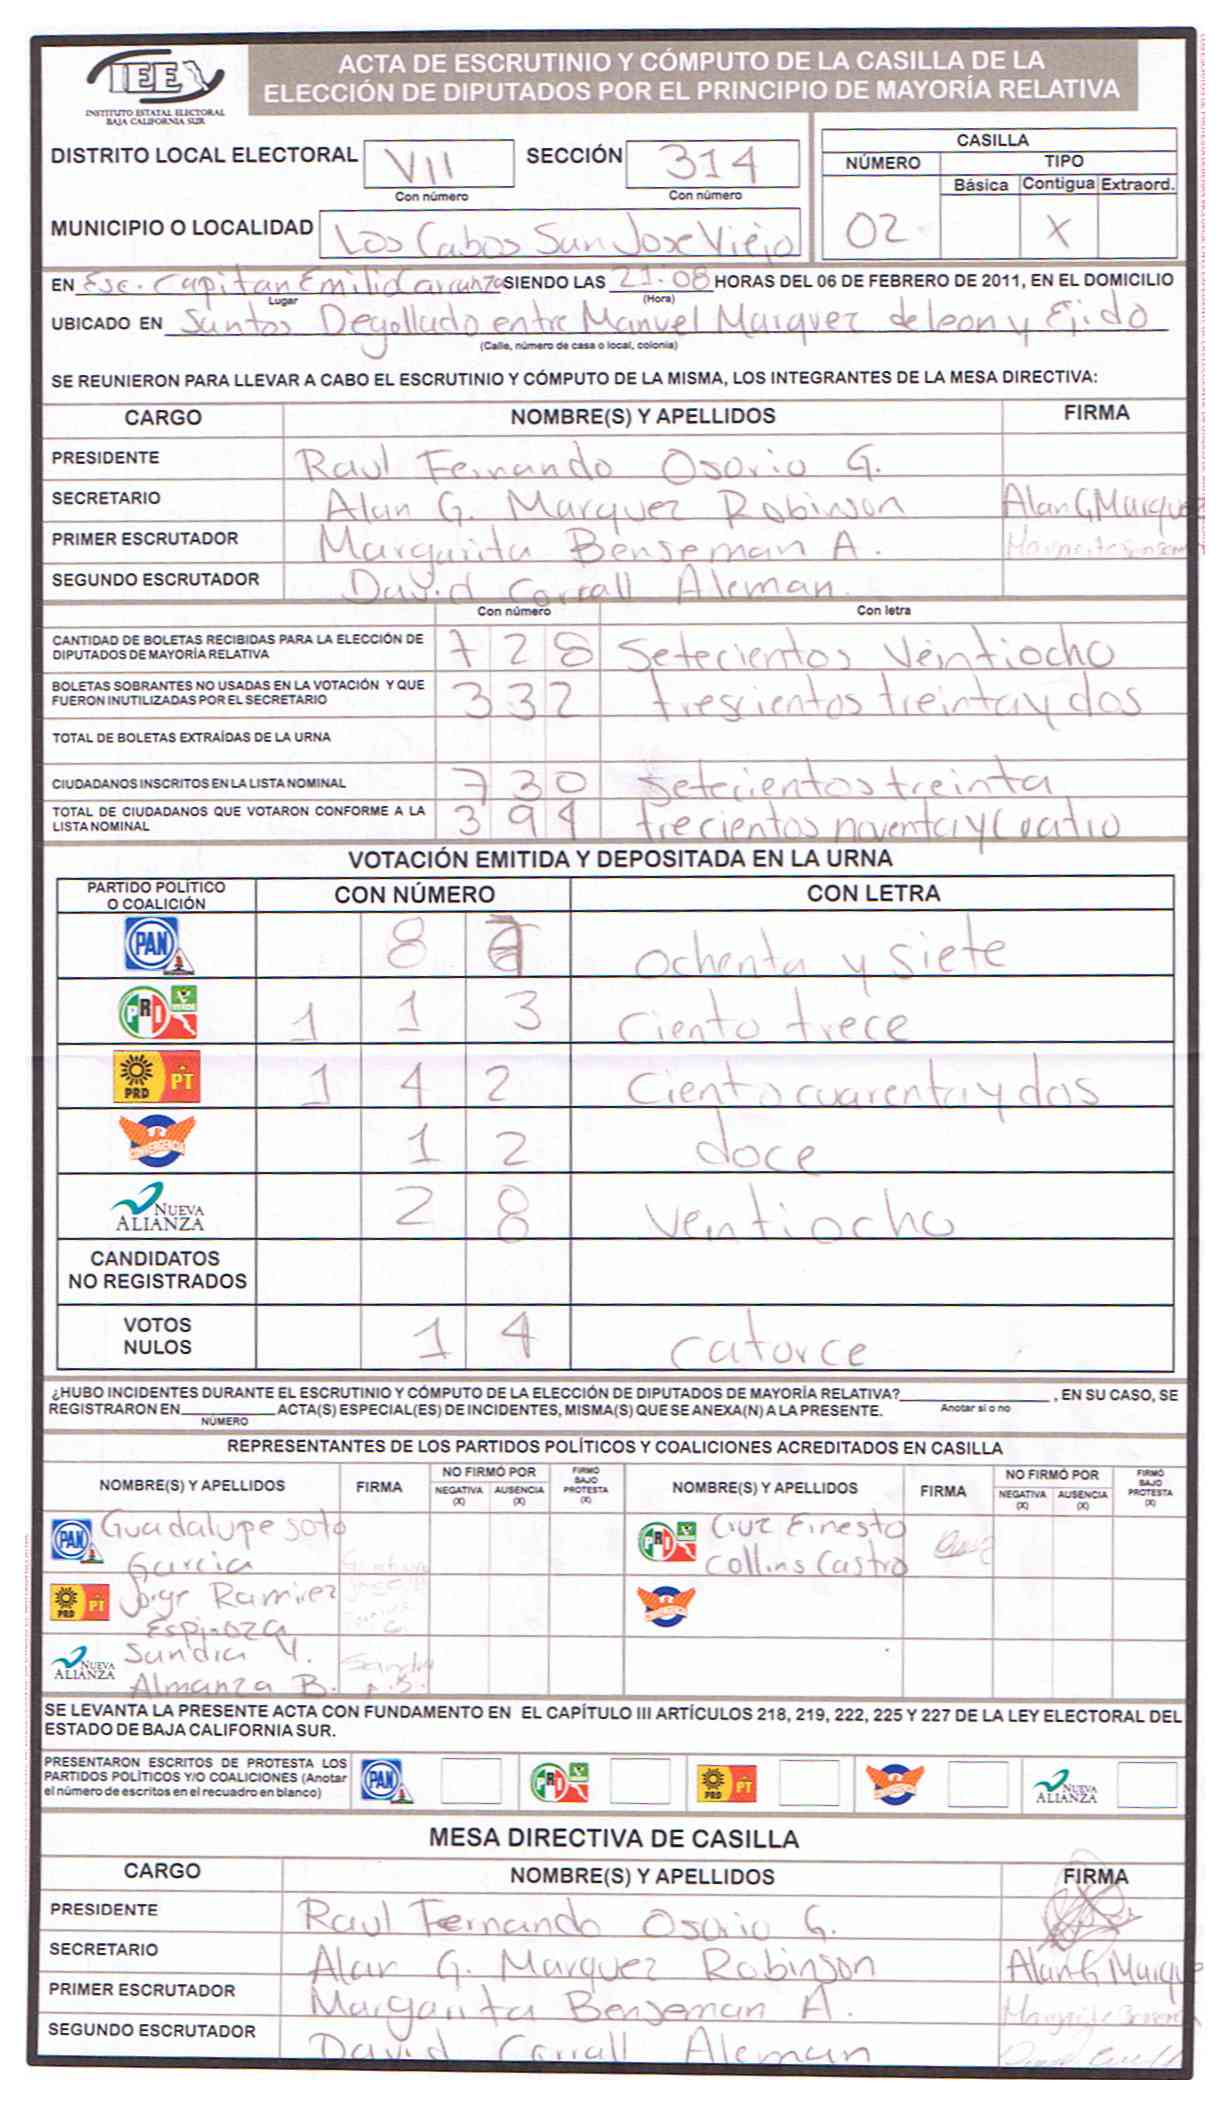 IEE
INSTITUTO ESTATAL ELECTORAL
BAJA CALIFORNIA SUR
ACTA DE ESCRUTINIO Y CÓMPUTO DE LA CASILLA DE LA
ELECCIÓN DE DIPUTADOS POR EL PRINCIPIO DE MAYORÍA RELATIVA
DISTRITO LOCAL ELECTORAL VII SECCIÓN 314
Con número Con número
CASILLA
NÚMERO TIPO
Básica Contigua Extraord.
02 X
MUNICIPIO O LOCALIDAD Los Cabos San Jose Viejo
EN Esc. Capitan Emilio Carranza SIENDO LAS 21:08 HORAS DEL 06 DE FEBRERO DE 2011, EN EL DOMICILIO
Lugar (Hora)
UBICADO EN Santos Degollado entre Manuel Marquez de leon y Ejido
(Calle, número de casa o local, colonia)
SE REUNIERON PARA LLEVAR A CABO EL ESCRUTINIO Y CÓMPUTO DE LA MISMA, LOS INTEGRANTES DE LA MESA DIRECTIVA:
CARGO NOMBRE(S) Y APELLIDOS FIRMA
PRESIDENTE Raul Fernando Osorio G.
SECRETARIO Alan G. Marquez Robinson Alan G Marquez
PRIMER ESCRUTADOR Margarita Benseman A.
SEGUNDO ESCRUTADOR David Corrall Aleman.
Con número Con letra
CANTIDAD DE BOLETAS RECIBIDAS PARA LA ELECCIÓN DE
DIPUTADOS DE MAYORÍA RELATIVA 7 2 8 Setecientos Veintiocho
BOLETAS SOBRANTES NO USADAS EN LA VOTACIÓN Y QUE
FUERON INUTILIZADAS POR EL SECRETARIO 3 3 2 trescientos treinta y dos
TOTAL DE BOLETAS EXTRAÍDAS DE LA URNA
CIUDADANOS INSCRITOS EN LA LISTA NOMINAL 7 3 0 setecientos treinta
TOTAL DE CIUDADANOS QUE VOTARON CONFORME A LA
LISTA NOMINAL 3 9 4 trecientos noventa y Cuatro
VOTACIÓN EMITIDA Y DEPOSITADA EN LA URNA
PARTIDO POLÍTICO
O COALICIÓN CON NÚMERO CON LETRA
PAN 8 ochenta y siete
PRI VERDE 1 1 3 Ciento trece
PRD PT 1 4 2 Ciento cuarenta y dos
CONVERGENCIA 1 2 doce
NUEVA
ALIANZA 2 8 Ventiocho
CANDIDATOS
NO REGISTRADOS
VOTOS
NULOS 1 4 catorce
¿HUBO INCIDENTES DURANTE EL ESCRUTINIO Y CÓMPUTO DE LA ELECCIÓN DE DIPUTADOS DE MAYORÍA RELATIVA? , EN SU CASO, SE
REGISTRARON EN ACTA(S) ESPECIAL(ES) DE INCIDENTES, MISMA(S) QUE SE ANEXA(N) A LA PRESENTE. Anotar si o no
NÚMERO
REPRESENTANTES DE LOS PARTIDOS POLÍTICOS Y COALICIONES ACREDITADOS EN CASILLA
NOMBRE(S) Y APELLIDOS FIRMA NO FIRMÓ POR NEGATIVA (X) AUSENCIA (X) FIRMÓ BAJO PROTESTA (X) NOMBRE(S) Y APELLIDOS FIRMA NO FIRMÓ POR NEGATIVA (X) AUSENCIA (X) FIRMÓ BAJO PROTESTA (X)
PAN Guadalupe soto
Garcia
PRI Cruz Ernesto
Collins Castro Cruz
PRD PT Jorge Ramirez
Espinoza
NUEVA
ALIANZA Sandra Y.
Almanza B. Sandra
SE LEVANTA LA PRESENTE ACTA CON FUNDAMENTO EN EL CAPÍTULO III ARTÍCULOS 218, 219, 222, 225 Y 227 DE LA LEY ELECTORAL DEL
ESTADO DE BAJA CALIFORNIA SUR.
PRESENTARON ESCRITOS DE PROTESTA LOS
PARTIDOS POLÍTICOS Y/O COALICIONES (Anotar
el número de escritos en el recuadro en blanco)
PAN PRI PRD PT NUEVA ALIANZA
MESA DIRECTIVA DE CASILLA
CARGO NOMBRE(S) Y APELLIDOS FIRMA
PRESIDENTE Raul Fernando Osorio G.
SECRETARIO Alan G. Marquez Robinson Alan G Marque
PRIMER ESCRUTADOR Margarita Benseman A.
SEGUNDO ESCRUTADOR David Corrall Aleman